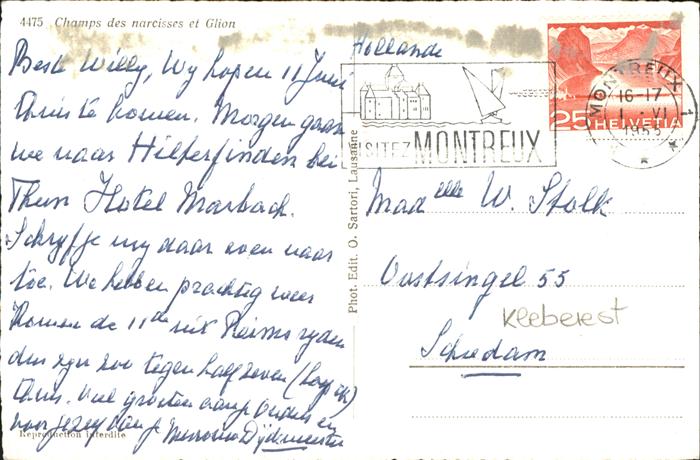 4475 Champs des narcisses et Glion
Beste Willy, Wy hopen 11 Juni
thuis te komen. Morgen gaan
we naar Hilterfinden bei
Thun Hotel Marbach.
Schryf je my daar even naar
toe. We hebben prachtig weer
Komen de 11de uit Reims ryden
dus zyn zoo tegen half zeven (hoop ik)
thuis. Veel groeten ook aan je ouders en
voor jezelf van je
Reproduction interdite
Phot. Edit. O. Sartori, Lausanne
Hollande
VISITEZ MONTREUX
MONTREUX 1
16-17
1. VI
1953
25 HELVETIA
Madelle W. Stolk
Oostsingel 55
Kleberest
Schiedam